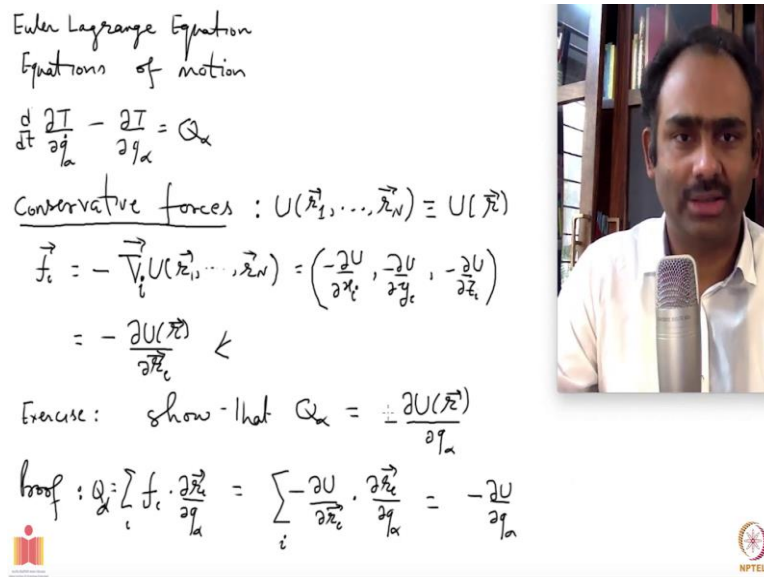 Euler Lagrange Equation
Equations of motion
d/dt ∂T/∂q̇α − ∂T/∂qα = Qα
Conservative forces : U(r⃗1, ..., r⃗N) ≡ U(r⃗)
f⃗i = − ∇⃗i U(r⃗1, ..., r⃗N) = (−∂U/∂xi, −∂U/∂yi, −∂U/∂zi)
= − ∂U(r⃗)/∂r⃗i <
Exercise: show that Qα = − ∂U(r⃗)/∂qα
Proof : Qα = ∑i fi · ∂r⃗i/∂qα = ∑i −∂U/∂r⃗i · ∂r⃗i/∂qα = −∂U/∂qα
NPTEL